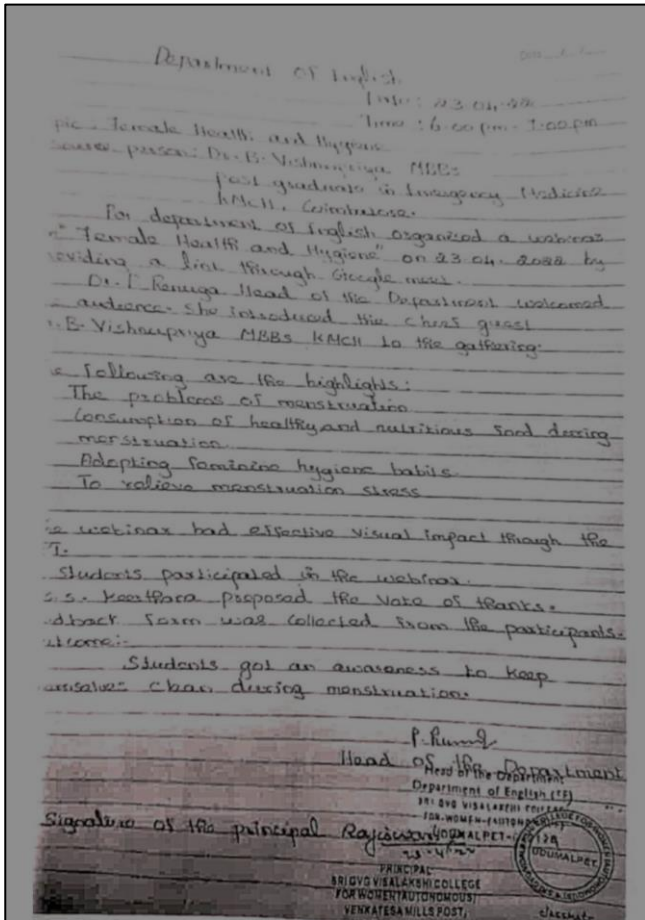 Department of English
Date: 23.04.22
Time: 6.00pm - 7.00pm
pic: Female Health and Hygiene
source person: Dr. B. Vishnupriya MBBs
post graduate in Emergency Medicine
KMCH, Coimbatore.
For department of English organised a webinar
n "Female Health and Hygiene" on 23.04.2022 by
oviding a link through Google meet.
Dr. P Renuga Head of the Department welcomed
e audience. She introduced the chief guest
B. Vishnupriya MBBs KMCH to the gathering.
e following are the highlights:
The problems of menstruation
Consumption of healthy and nutritious food during
menstruation.
Adopting feminine hygiene habits
To relieve menstruation stress
e webinar had effective visual impact through the
T.
Students participated in the webinar.
s.s. Keerthara proposed the vote of thanks.
edback form was collected from the participants.
utcome:-
Students got an awareness to keep
emselves clean during menstruation.
Head of the Department
Head of the Department
Department of English
SRI GVG VISALAKSHI COLLEGE
FOR WOMEN (AUTONOMOUS)
UDUMALPET
Signature of the principal Rajeswari
UDUMALPET
PRINCIPAL
SRI GVG VISALAKSHI COLLEGE
FOR WOMEN (AUTONOMOUS)
VENKATESA MILLS POST,